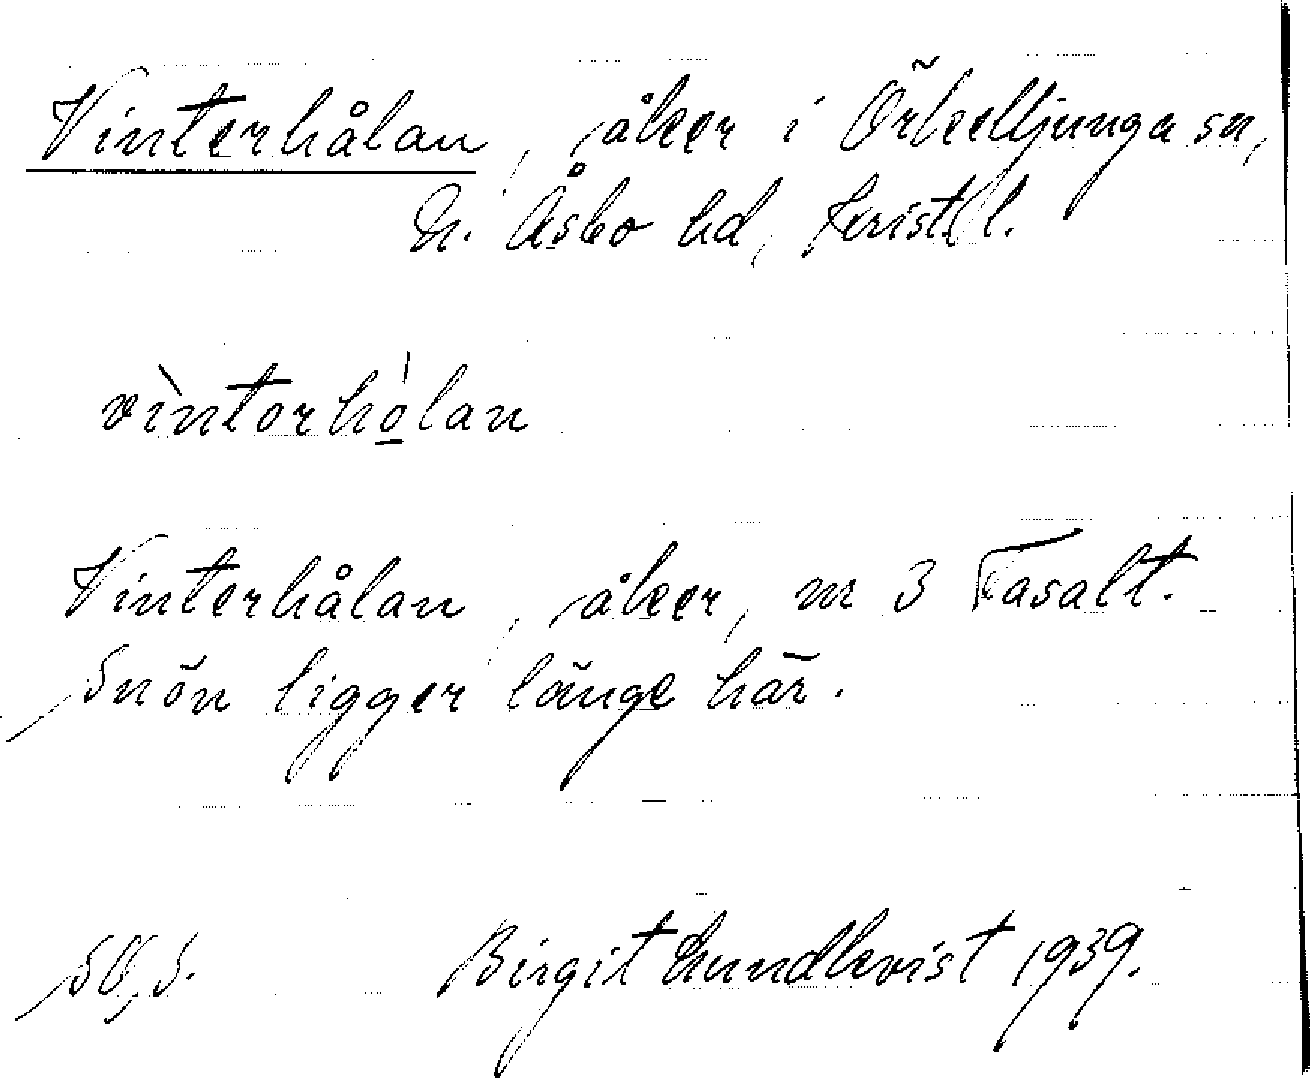 Vinterhålan, åker i Örkelljunga sn,
N. Åsbo hd, Krist. l.
vìntorhólan
Vinterhålan, åker, nr 3 Fasalt.
Snön ligger länge här.
Birgit Lundkvist 1939.